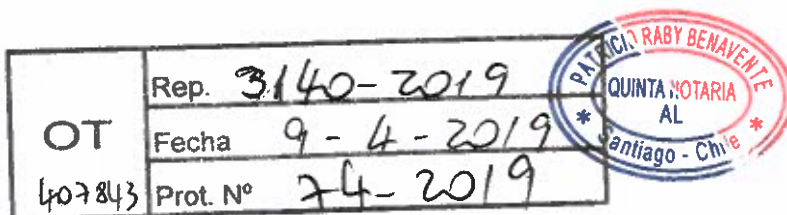 Rep. 3140-2019
OT
Fecha 9-4-2019
407843
Prot. Nº 74-2019
PATRICIO RABY BENAVENTE
QUINTA NOTARIA
AL
* Santiago - Chile *